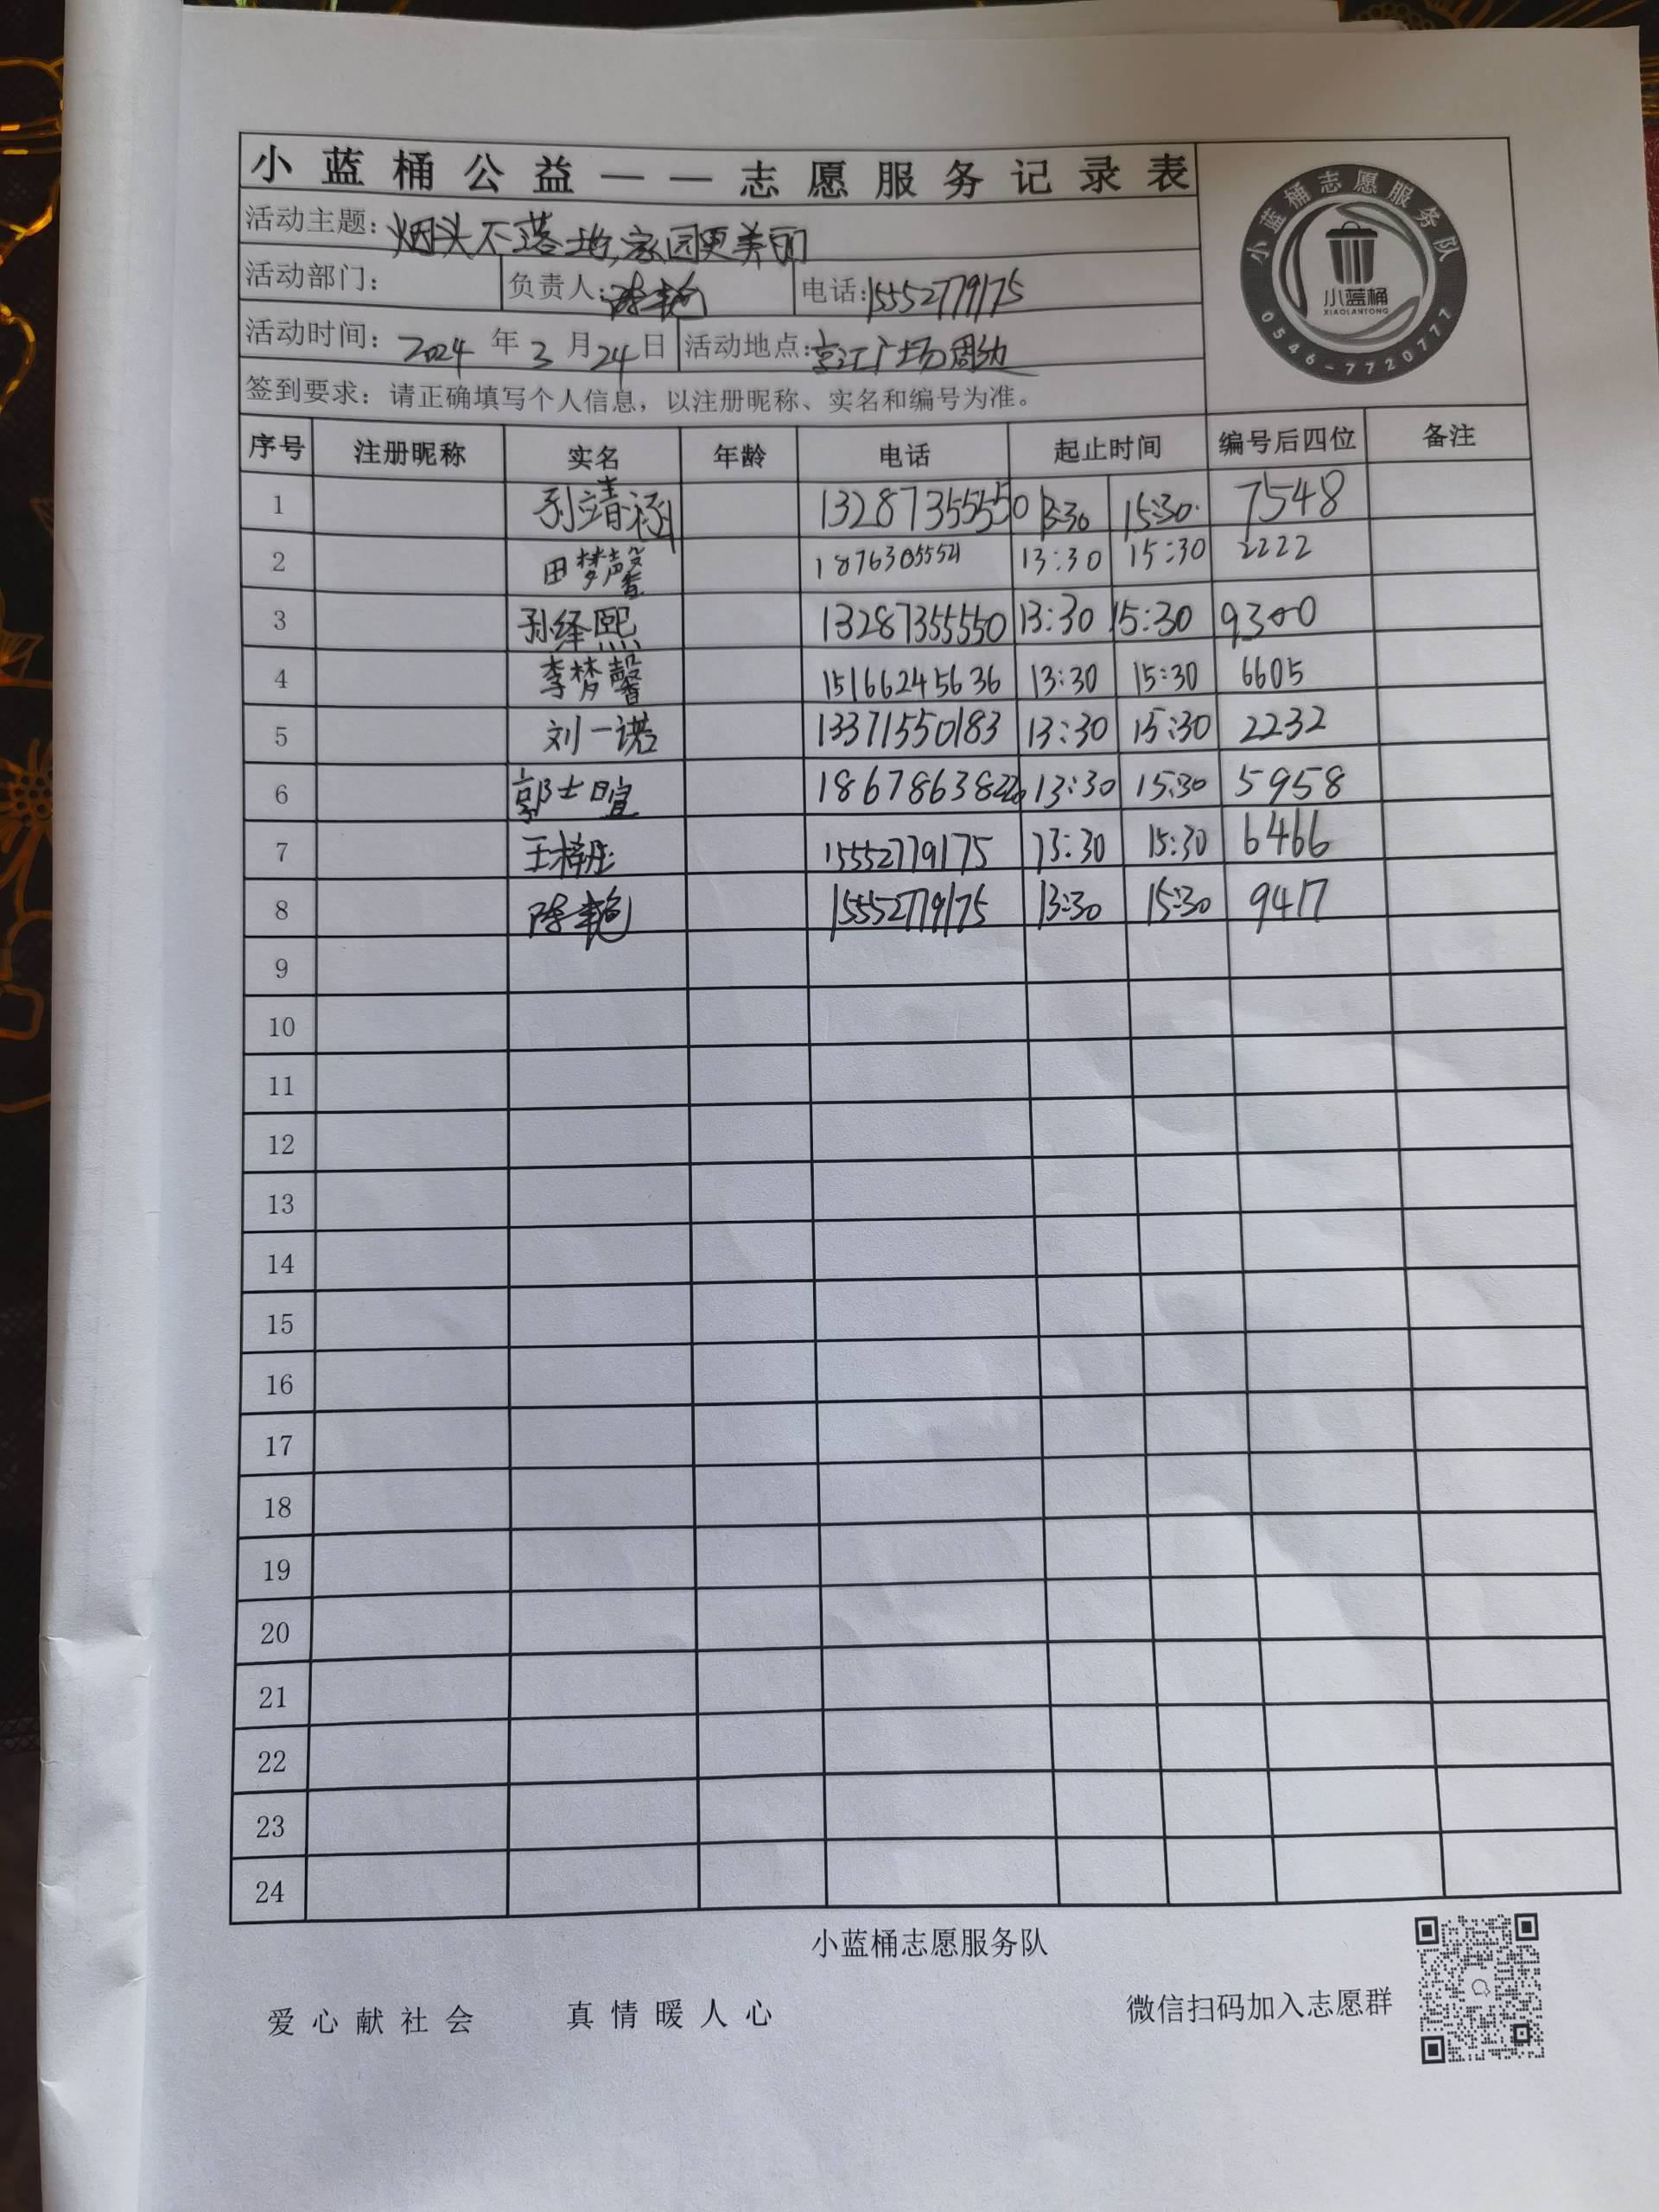 小蓝桶公益——志愿服务记录表
活动主题：烟头不落地,家园更美丽
活动部门： 负责人：陈艳 电话：15552779175
活动时间：2024年3月24日 活动地点：京江广场周边
签到要求：请正确填写个人信息，以注册昵称、实名和编号为准。
小蓝桶志愿服务队
小蓝桶
XIAOLANTONG
0546-7720777
序号 注册昵称 实名 年龄 电话 起止时间 编号后四位 备注
1 孙靖涵 13287355550 13:30 15:30 7548
2 田梦馨 18763055521 13:30 15:30 2222
3 孙绎熙 13287355550 13:30 15:30 9300
4 李梦馨 15166245636 13:30 15:30 6605
5 刘一诺 13371550183 13:30 15:30 2232
6 郭士暄 13:30 15:30 5958
7 王梓彤 15552779175 13:30 15:30 6466
8 陈艳 15552779175 13:30 15:30 9417
9
10
11
12
13
14
15
16
17
18
19
20
21
22
23
24
小蓝桶志愿服务队
爱心献社会 真情暖人心 微信扫码加入志愿群